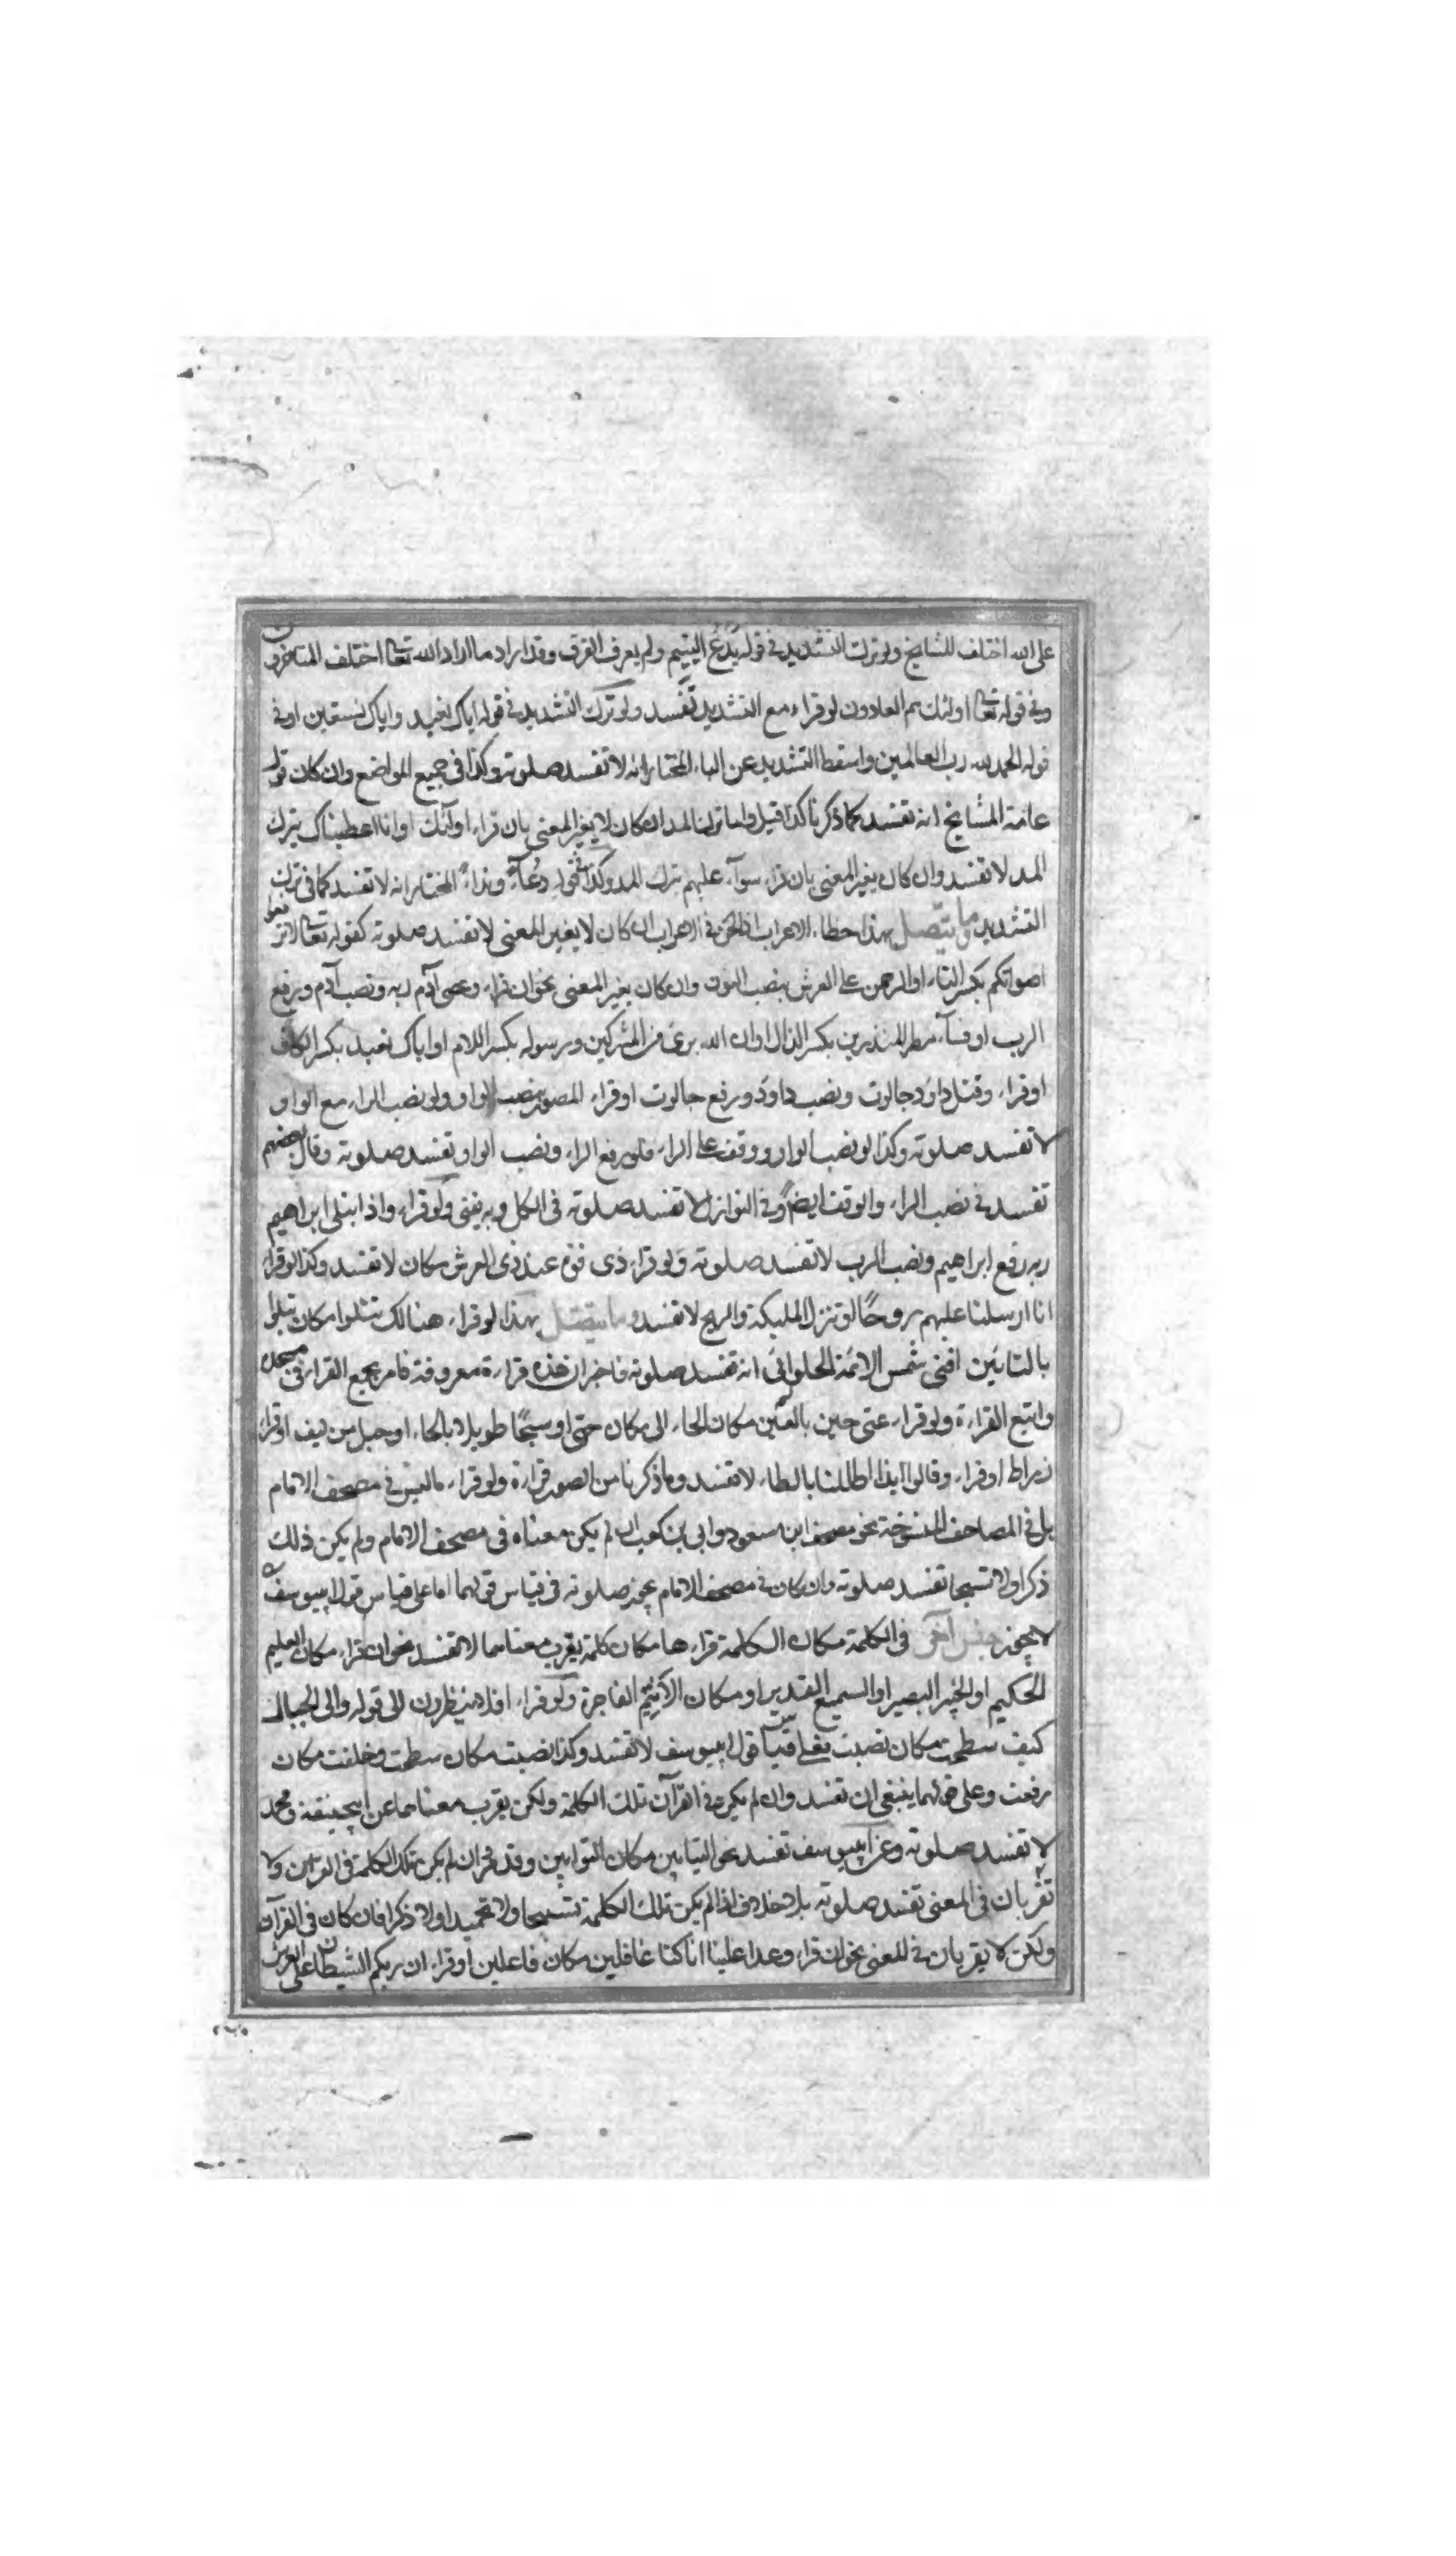 على الله اختلف المشايخ ولو ترك التشديد في قوله يدع اليتيم ولم يعرف الفرق وقد اراد ما اراد الله تعالى اختلف المتاخرون
وفي قوله تعالى اولئك هم العادون لو قراء مع التشديد تفسد ولو ترك التشديد في قوله اياك نعبد واياك نستعين او في
قوله الحمد لله رب العالمين واسقط التشديد عن الباء المختار انه لا تفسد صلوته وكذا في جميع المواضع وان كان قول
عامة المشايخ انه تفسد كما ذكرنا كذا قيل واما ترك المد ان كان لا يغير المعنى بان قراء اولئك او انا اعطيناك بترك
المد لا تفسد وان كان يغير المعنى بان قراء سوآء عليهم بترك المد وكذا في قوله دعاء ونداء المختار انه لا تفسد كما في ترك
التشديد وما يتصل بهذا خطاء الاعراب اذا لحن في الاعراب ان كان لا يغير المعنى لا تفسد صلوته كقوله تعالى لا ترفعوا
اصواتكم بكسر التاء او الرحمن على العرش بنصب النون وان كان يغير المعنى نحو ان قراء وعصى آدم ربه ونصب آدم ورفع
الرب او فسآء مطر المنذرين بكسر الذال او ان الله برئ من المشركين ورسوله بكسر اللام او اياك نعبد بكسر الكاف
او قراء وقتل داود جالوت ونصب داود ورفع جالوت او قراء المصور بنصب الواو ولو نصب الراء مع الواو
لا تفسد صلوته وكذا لو نصب الواو ووقف على الراء فلو رفع الراء ونصب الواو تفسد صلوته وقال بعضهم
تفسد في نصب الراء والوقف ايضا وفي النوازل لا تفسد صلوته في الكل وبه يفتى ولو قراء واذا ابتلى ابراهيم
ربه رفع ابراهيم ونصب الرب لا تفسد صلوته ولو قراء ذى قوة عند ذى العرش مكان لا تفسد وكذا لو قراء
انا ارسلنا عليهم روحًا او تنزل المليكة والريح لا تفسد وما يتصل بهذا لو قراء هنالك تتلوا مكان تبلوا
بالتائين افتى شمس الائمة الحلوائى انه تفسد صلوته فاخبر ان هذه قراءة معروفة فامر بجمع القراء في مسجده
واتبع القراءة ولو قراء عتى حين بالعين مكان الحاء الى مكان حتى او سبحًا طويلا بالخاء او حبل من ليف او قراء
زراط او قراء وقالوا ايذا اطللنا بالطاء لا تفسد وما ذكرنا من الصور قراءة ولو قراء ما ليس في مصحف الامام
بل في المصاحف المنسوخة نحو مصحف ابن مسعود وابى بن كعب ان لم يكن معناه في مصحف الامام ولم يكن ذلك
ذكرا ولا تسبيحا تفسد صلوته وان كان في مصحف الامام يجوز صلوته في قياس قولهما اما على قياس قول ابييوسف
لا يجوز جنس آخر في الكلمة مكان الكلمة قراءها مكان كلمة يقرب معناها لا تفسد نحو ان قراء مكان العليم
الحكيم او الخبير البصير او السميع القدير او مكان الاثيم الفاجر ولو قراء افلا ينظرون الى قوله والى الجبال
كيف سطحت مكان نصبت فعلى قياس قول ابييوسف لا تفسد وكذا نصبت مكان سطحت وخلقت مكان
رفعت وعلى قولهما ينبغى ان تفسد وان لم يكن في القرآن تلك الكلمة ولكن يقرب معناها عن ابيحنيفة ومحمد
لا تفسد صلوته وعن ابييوسف تفسد نحو التيابين مكان التوابين وقد مر ان لم يكن تلك الكلمة في القرآن ولا
تقربان في المعنى تفسد صلوته بلا خلاف اذا لم يكن تلك الكلمة تسبيحا ولا تحميدا ولا ذكرا فان كان في القرآن
ولكن لا يقربان في المعنى نحو ان قراء وعدا علينا انا كنا غافلين مكان فاعلين او قراء ان ربكم الشيطان على العرش